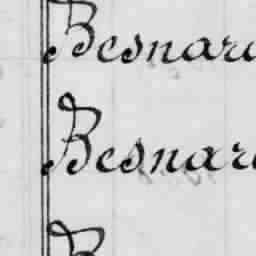 Besnar
Besnar
B